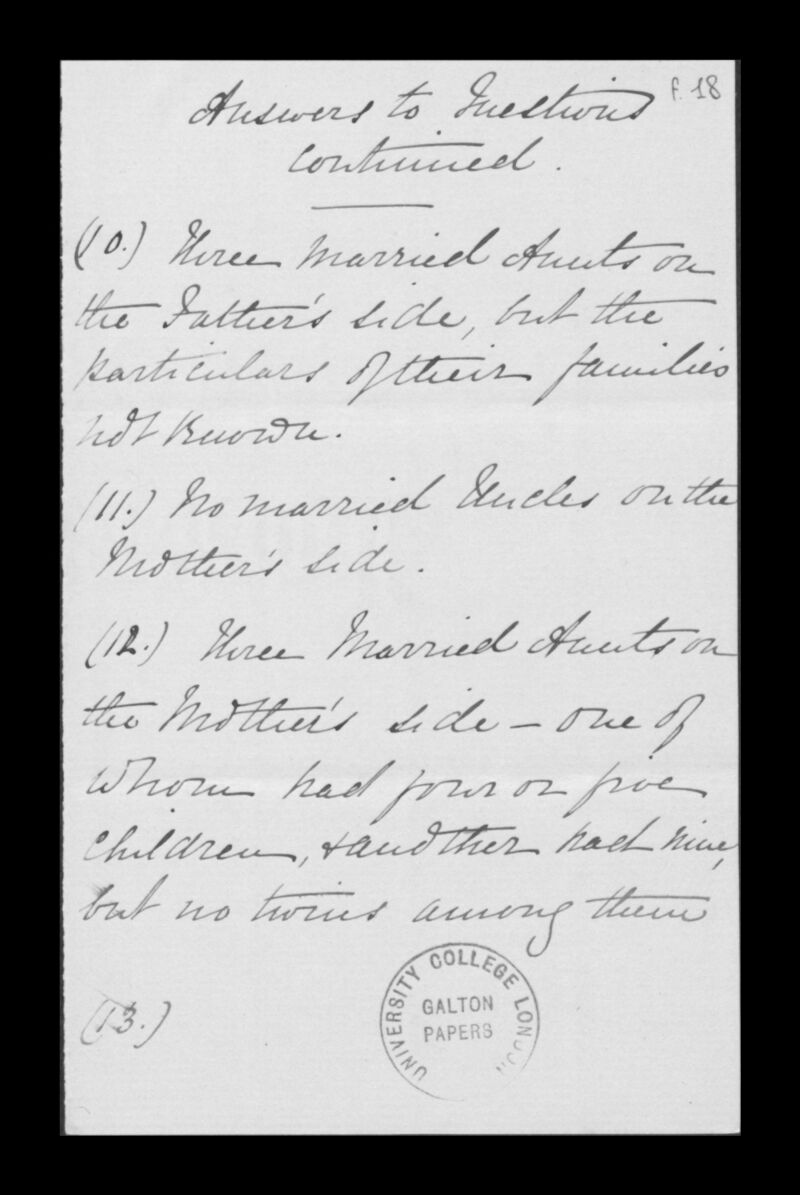 f. 18
Answers to Questions
continued.
(10.) Three Married Aunts on
the Father's side, but the
particulars of their families
not known.
(11.) No married Uncles on the
Mother's side.
(12.) Three Married Aunts on
the Mother's side - one of
whom had four or five
children, & another had nine,
but no twins among them
(13.)
UNIVERSITY COLLEGE LONDON
GALTON
PAPERS